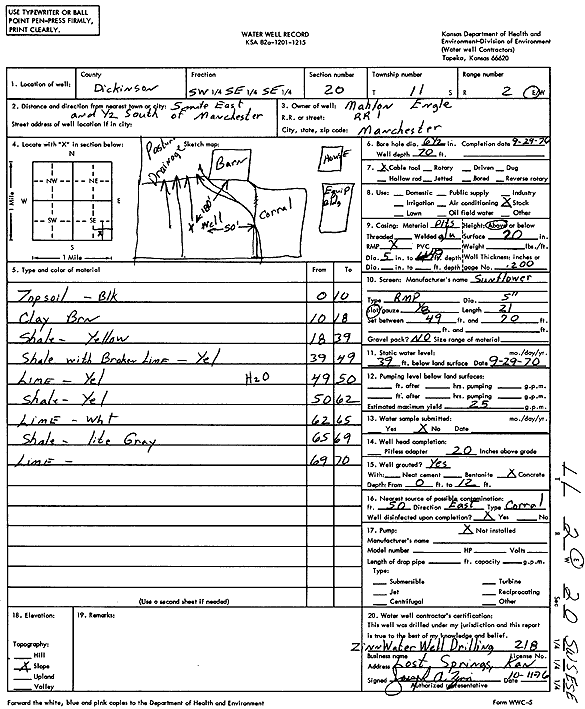 USE TYPEWRITER OR BALL
POINT PEN-PRESS FIRMLY,
PRINT CLEARLY.
WATER WELL RECORD
KSA 82a-1201-1215
Kansas Department of Health and
Environment-Division of Environment
(Water well Contractors)
Topeka, Kansas 66620
1. Location of well:
County
Dickinson
Fraction
SW 1/4 SE 1/4 SE 1/4
Section number
20
Township number
T 11 S
Range number
R 2 E/W
2. Distance and direction from nearest town or city: East
and 1/2 South of Manchester
Street address of well location if in city:
3. Owner of well: Mahlon Engle
R.R. or street: RR 1
City, state, zip code: Manchester
4. Locate with "X" in section below:
N
NW NE
W E
SW SE
X
S
1 Mile
1 Mile
Sketch map:
Pasture
Drainage
Barn
House
Equip
Bldg
Corral
X Well
50'
6. Bore hole dia. 6 1/2 in. Completion date 9-29-76
Well depth 70 ft.
7. X Cable tool Rotary Driven Dug
Hollow rod Jetted Bored Reverse rotary
8. Use: Domestic Public supply Industry
Irrigation Air conditioning X Stock
Lawn Oil field water Other
9. Casing: Material Height: Above or below
Threaded Welded Surface 20 in.
RMP X PVC Weight lbs./ft.
Dia. 5 in. to ft. depth Wall Thickness: inches or
Dia. in. to ft. depth gage No. .200
10. Screen: Manufacturer's name Sunflower
Type RMP Dia. 5"
Slot/gauze 1/8 Length 21
Set between 49 ft. and 70 ft.
ft. and ft.
Gravel pack? NO Size range of material
5. Type and color of material From To
Topsoil - Blk 0 10
Clay Brn 10 18
Shale - Yellow 18 39
Shale with Broken Lime - Yel 39 49
Lime - Yel H2O 49 50
Shale - Yel 50 62
Lime - Wht 62 65
Shale - lite Gray 65 69
Lime - 69 70
(Use a second sheet if needed)
11. Static water level: mo./day/yr.
39 ft. below land surface Date 9-29-70
12. Pumping level below land surfaces:
ft. after hrs. pumping g.p.m.
ft. after hrs. pumping g.p.m.
Estimated maximum yield 25 g.p.m.
13. Water sample submitted: mo./day/yr.
Yes X No Date
14. Well head completion:
Pitless adapter 20 Inches above grade
15. Well grouted? Yes
With: Neat cement Bentonite X Concrete
Depth: From 0 ft. to 12 ft.
16. Nearest source of possible contamination:
ft. 50 Direction East Type Corral
Well disinfected upon completion? X Yes No
17. Pump: X Not installed
Manufacturer's name
Model number HP Volts
Length of drop pipe ft. capacity g.p.m.
Type:
Submersible Turbine
Jet Reciprocating
Centrifugal Other
18. Elevation:
Topography:
Hill
X Slope
Upland
Valley
19. Remarks:
20. Water well contractor's certification:
This well was drilled under my jurisdiction and this report
is true to the best of my knowledge and belief.
Zinn Water Well Drilling 218
Business name License No.
Address Lost Springs, Kan
Signed Date 10-11-76
Authorized representative
Forward the white, blue and pink copies to the Department of Health and Environment
Form WWC-5
T 11 R 2 E W Sec 20 SW SE SE 1/4 1/4 1/4